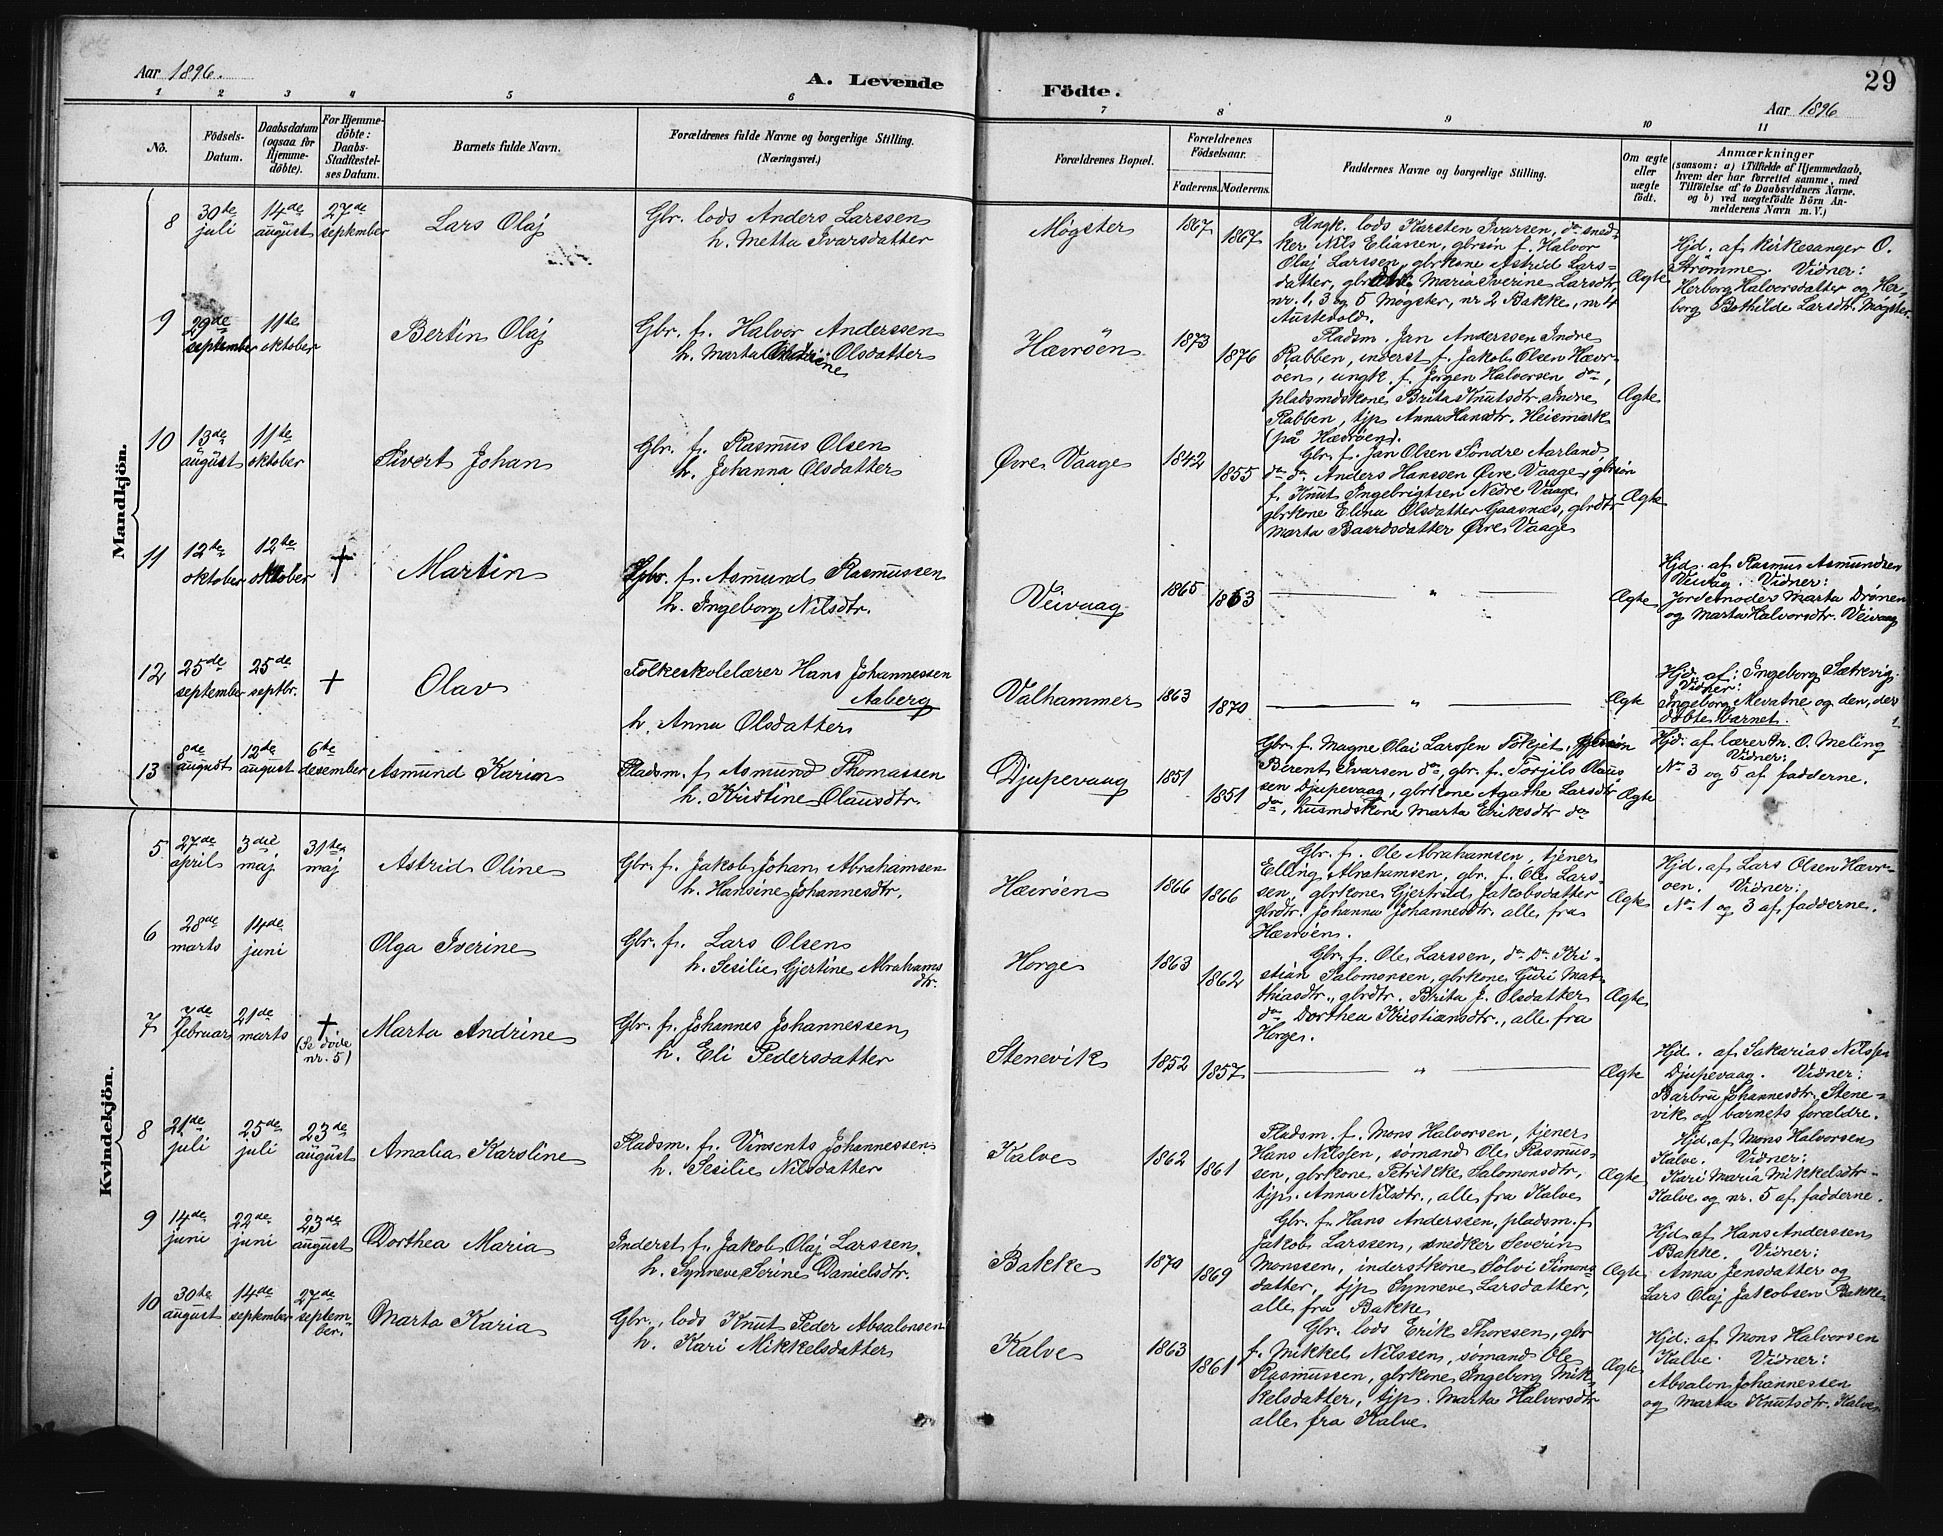 Aar 1896.
A. Levende
1 2 3 4 5 6
No.
Födsels-
Datum.
Daabsdatum
(ogsaa for
Hjemme-
döbte).
For Hjemme-
döbte:
Daabs-
Stadfæstel-
ses Datum.
Barnets fulde Navn.
Forældrenes fulde Navne og borgerlige Stilling.
(Næringsvei.)
Mandkjön.
8
30te
juli
14de
august
27de
september
Lars Olaj
Gbr. lods Anders Larssen
h. Metta Ivarsdatter
9
29de
september
11te
oktober
Bertin Olaj
Gbr. f. Halvor Anderssen
h. Marta Olsdatter
10
13de
august
11te
oktober
Sivert Johan
Gbr. f. Rasmus Olsen
h. Johanna Olsdatter
11
12te
oktober
12te
oktober
†
Martin
Gbr. f. Asmund Rasmussen
h. Ingeborg Nilsdtr.
12
25de
september
25de
septbr.
†
Olav
Folkeskolelærer Hans Johannessen
Aaberg
h. Anna Olsdatter
13
8de
august
12te
august
6te
desember
Asmund Karion
Pladsm. f. Asmund Thomassen
h. Kristine Olausdtr.
Kvindekjön.
5
27de
april
3die
maj
31te
maj
Astrid Oline
Gbr. f. Jakob Johan Abrahamsen
h. Hansine Johannesdtr.
6
28de
marts
14de
juni
Olga Iverine
Gbr. f. Lars Olsen
h. Sesilie Gjertine Abrahams
dtr.
7
7de
februar
21de
marts
†
(Se döde
nr. 5)
Marta Andrine
Gbr. f. Johannes Johannessen
h. Eli Pedersdatter
8
21de
juli
25de
juli
23de
august
Amalia Karoline
Pladsm. f. Vinsents Johannessen
h. Sesilie Nilsdatter
9
14de
juni
22de
juni
23de
august
Dorthea Maria
Inderst f. Jakob Olaj Larssen
h. Synneve Serine Danielsdtr.
10
30te
august
14de
september
27de
septem-
ber.
Marta Karia
Gbr., lods Knut Peder Absalonsen
h. Kari Mikkelsdatter
Födte.
29
Aar 1896
7 8 9 10 11
Forældrenes Bopæl.
Forældrenes
Födselsaar.
Faderens.
Moderens.
Faddernes Navne og borgerlige Stilling.
Om ægte
eller
uægte
født.
Anmærkninger
(saasom: a) i Tilfælde af Hjemmedaab,
hvem der har forrettet samme, med
Tilföielse af to Daabsvidners Navne.
og b) ved uægtefödte Börn An-
melderens Navn m. V.)
Møgster
1867
1867
Ungk. lods Karsten Ivarsen, do sned-
ker Nils Eliassen, gbrsön f. Halvor
Olaj Larssen, gbrkone Astrid Lars-
datter, Maria Iverine Larsdtr.
nr. 1, 3 og 5 Møgster, nr 2 Bakke, nr 4
Austevold.
Ægte
Hjd. af kirkesanger O.
Strømme. Vidner:
Herborg Halvorsdatter og Her-
borg Bothilde Larsdtr. Møgster.
Hævröen
1873
1876
Pladsm. Jan Anderssen Indre
Rabben, inderst f. Jakob Olsen Hævr-
öen, ungk. f. Jørgen Halvorsen do,
pladsmdskone Brita Knutsdtr. Indre
Rabben, tjp. Anna Hansdtr. Heiemark
(på Hævröen).
Ægte
Øvre Vaage
1842
1855
Gbr. f. Jan Olsen Söndre Aarland,
do do Anders Hanssen Øvre Vaage, gbrsön
f. Knut Ingebrigtsen Nedre Vaage,
gbrkone Elina Olsdatter Gaasnæs, gbrdtr
Marta Baardsdatter Øvre Vaage
Ægte
Veivaag
1865
1863
"
Ægte
Hjd. af Rasmus Asmundsen
Veivåg. Vidner:
Jordemoder Marta Drönen
og Marta Halvorsdtr. Veivaag
Valhammer
1863
1870
"
Ægte
Hjd. af: Ingeborg Sætrevig
Vidner:
Ingeborg Mevatne og den, der
döbte barnet.
Djupevaag
1851
1851
Gbr. f. Magne Olai Larssen Fökjet, gbrsön
Berent Ivarsen do, gbr. f. Torjils Olaus
sen Djupevaag, gbrkone Agathe Larsdtr
do, husmdskone Marta Eriksdtr do
Ægte
Hjd. af lærer M. O. Meling
Vidner:
No 3 og 5 af fadderne.
Hævröen
1866
1866
Gbr. f. Ole Abrahamsen, tjener
Elling Abrahamsen, gbr. f. Ole Lars-
sen, gbrkone Gjertrud Jakobsdatter
gbrdtr. Johanna Johannesdtr. alle fra
Hævröen.
Ægte
Hjd. af Lars Olsen Hævr-
öen. Vidner:
No 1 og 3 af fadderne.
Horge
1863
1862
Gbr. f. Ole Larssen, do do Kri-
stian Salomonsen, gbrkone Guri Mat-
thiasdtr., gbrdtr. Brita J. Olsdatter
do Dorthea Kristiansdtr., alle fra
Horge.
Ægte
Stenevik
1852
1857
"
Ægte
Hjd. af Sakarias Nilssen
Djupevaag. Vidner:
Barbru Johannesdtr. Stene-
vik og barnets forældre.
Kalve
1862
1861
Pladsm. f. Mons Halvorsen, tjener
Hans Nilssen, sømand Ole Rasmus-
sen, gbrkone Petrikke Salomonsdtr,
tjp. Anna Nilsdtr., alle fra Kalve
Ægte
Hjd. af Mons Halvorsen
Kalve. Vidner:
Kari Maria Mikkelsdtr.
Kalve og nr. 5 af fadderne.
Bakke
1870
1869
Gbr. f. Hans Anderssen, pladsm. f.
Jakob Larssen, snedker Severin
Monssen, inderstkone Sölvi Simons-
datter, tjp Synneve Larsdatter,
alle fra Bakke
Ægte
Hjd. af Hans Anderssen
Bakke. Vidner:
Anna Jensdatter og
Lars Olaj Jakobsen Bakke
Kalve
1863
1861
Gbr. lods Erik Thoresen, gbr
f. Mikkel Nilssen, sømand Ole
Rasmussen, gbrkone Ingeborg Mik-
kelsdatter, tjp. Marta Halvorsdtr
alle fra Kalve
Ægte
Hjd: af Mons Halvorsen
Kalve. Vidner:
Absalon Johannessen
og Marta Knutsdtr. Kalve